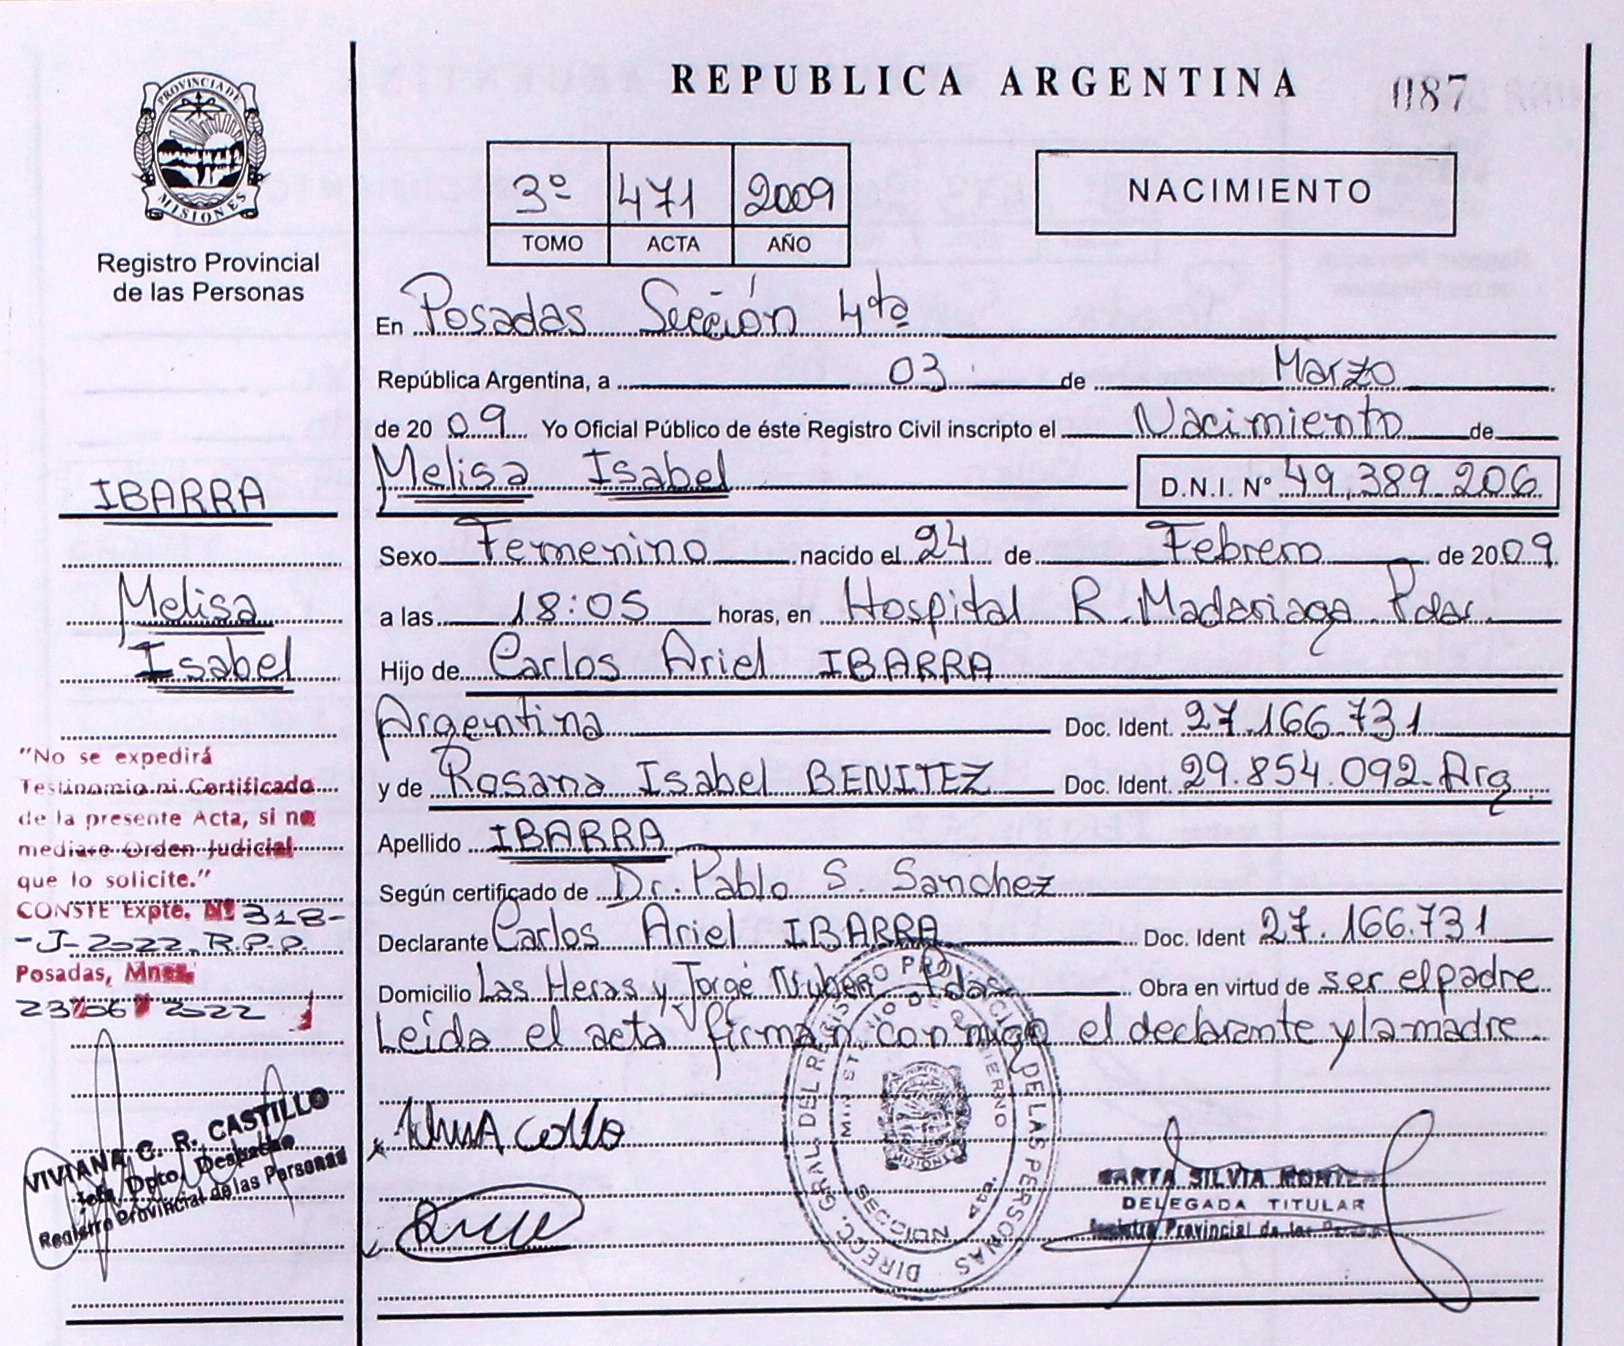 REPUBLICA ARGENTINA
087
PROVINCIA DE
MISIONES
Registro Provincial
de las Personas
3º 471 2009
TOMO ACTA AÑO
NACIMIENTO
En Posadas Sección 4ta
República Argentina, a 03 de Marzo
de 2009 Yo Oficial Público de éste Registro Civil inscripto el Nacimiento de
Melisa Isabel D.N.I. Nº 49.389.206
Sexo Femenino nacido el 24 de Febrero de 2009
a las 18:05 horas, en Hospital R. Madariaga Pdas.
Hijo de Carlos Ariel IBARRA
Argentina Doc. Ident. 27.166.731
y de Rosana Isabel BENITEZ Doc. Ident. 29.854.092-Arg.
Apellido IBARRA
Según certificado de Dr. Pablo S. Sanchez
Declarante Carlos Ariel IBARRA Doc. Ident 27.166.731
Domicilio Las Heras y Jorge Nuben Pdas Obra en virtud de ser el padre
Leída el acta firman conmigo el declarante y la madre
IBARRA
Melisa
Isabel
"No se expedirá
Testimonio ni Certificado
de la presente Acta, si no
mediare Orden Judicial
que lo solicite."
CONSTE Expte. Nº 318-
-J-2022.R.P.P.
Posadas, Mnes.
23 06 2022
VIVIANA C. R. CASTILLO
Jefa Dpto. Despacho
Registro Provincial de las Personas
DIRECC. GRAL. DEL REGISTRO PROVINCIAL DE LAS PERSONAS
MINISTERIO DE GOBIERNO
MISIONES
SECCION 4ta.
SILVIA
DELEGADA TITULAR
Registro Provincial de las Personas